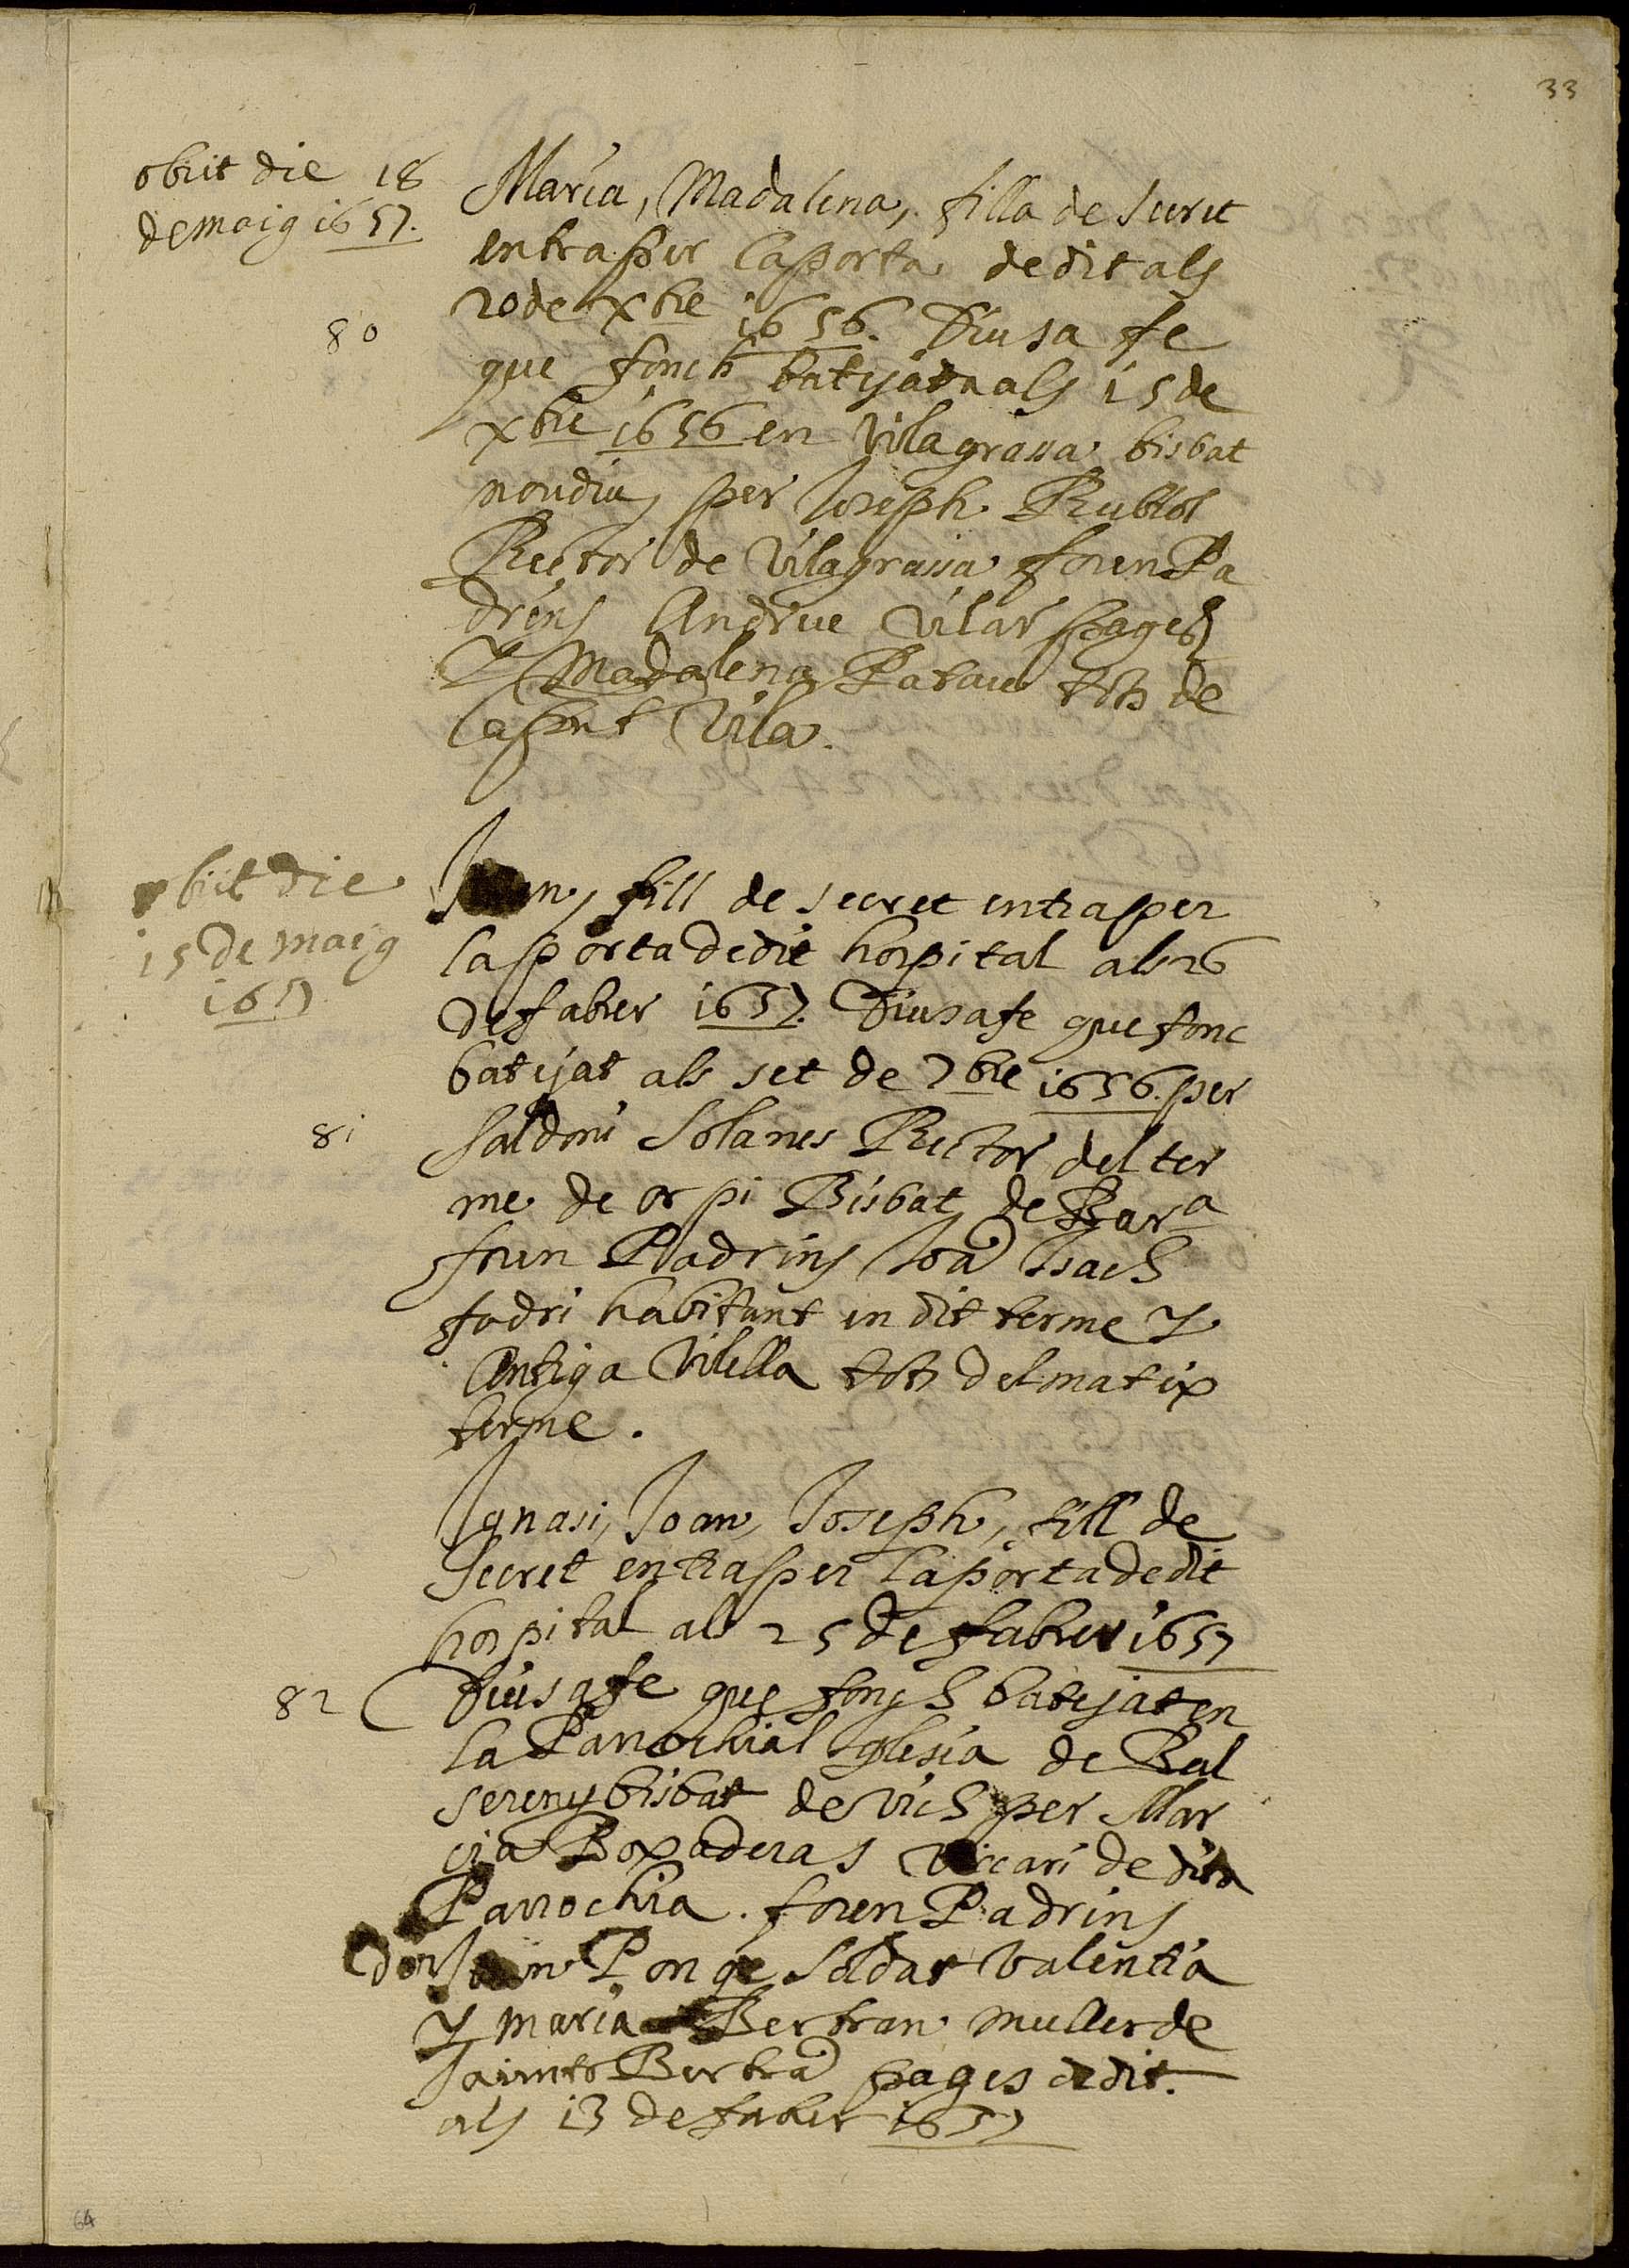 33
obiit die 18
de maig 1657.
80
Maria, Madalena, filla de secret
entra per la porta de dit als
20 de xbre 1656. Diu sa fe
que fonch batejada als 15 de
xbre 1656 en Vilagrassa bisbat
nou diu, per Joseph
Rector de Vilagrassa foren Pa
drins Andreu Vilar pages
y Madalena Palau tots de
la pnt Vila.
obiit die
15 de maig
1657
81
Joan, fill de secret entra per
la porta de dit hospital als 26
de fabrer 1657. Diu sa fe que fonc
batejat als set de 7bre 1656. per
Saldoni Solanes Rector del ter
me de orpi Bisbat de Bara
foren Padrins Joa Isach
fadri habitant in dit terme y
Antiga Vilella tots del mateix
terme.
82
Ignasi, Joan, Joseph, fill de
Secret entra per la porta de dit
hospital als 25 de fabrer 1657
Diu sa fe que fonch batejat en
la Parrochial Iglesia de Bal
sereny bisbat de Vich per Mar
cia Boxaderas viccari de dita
Parrochia. foren Padrins
don Joan Ponge soldat valentia
y maria Bertran muller de
Jaume Bertra pages de dit.
als 13 de fabrer 1657
64